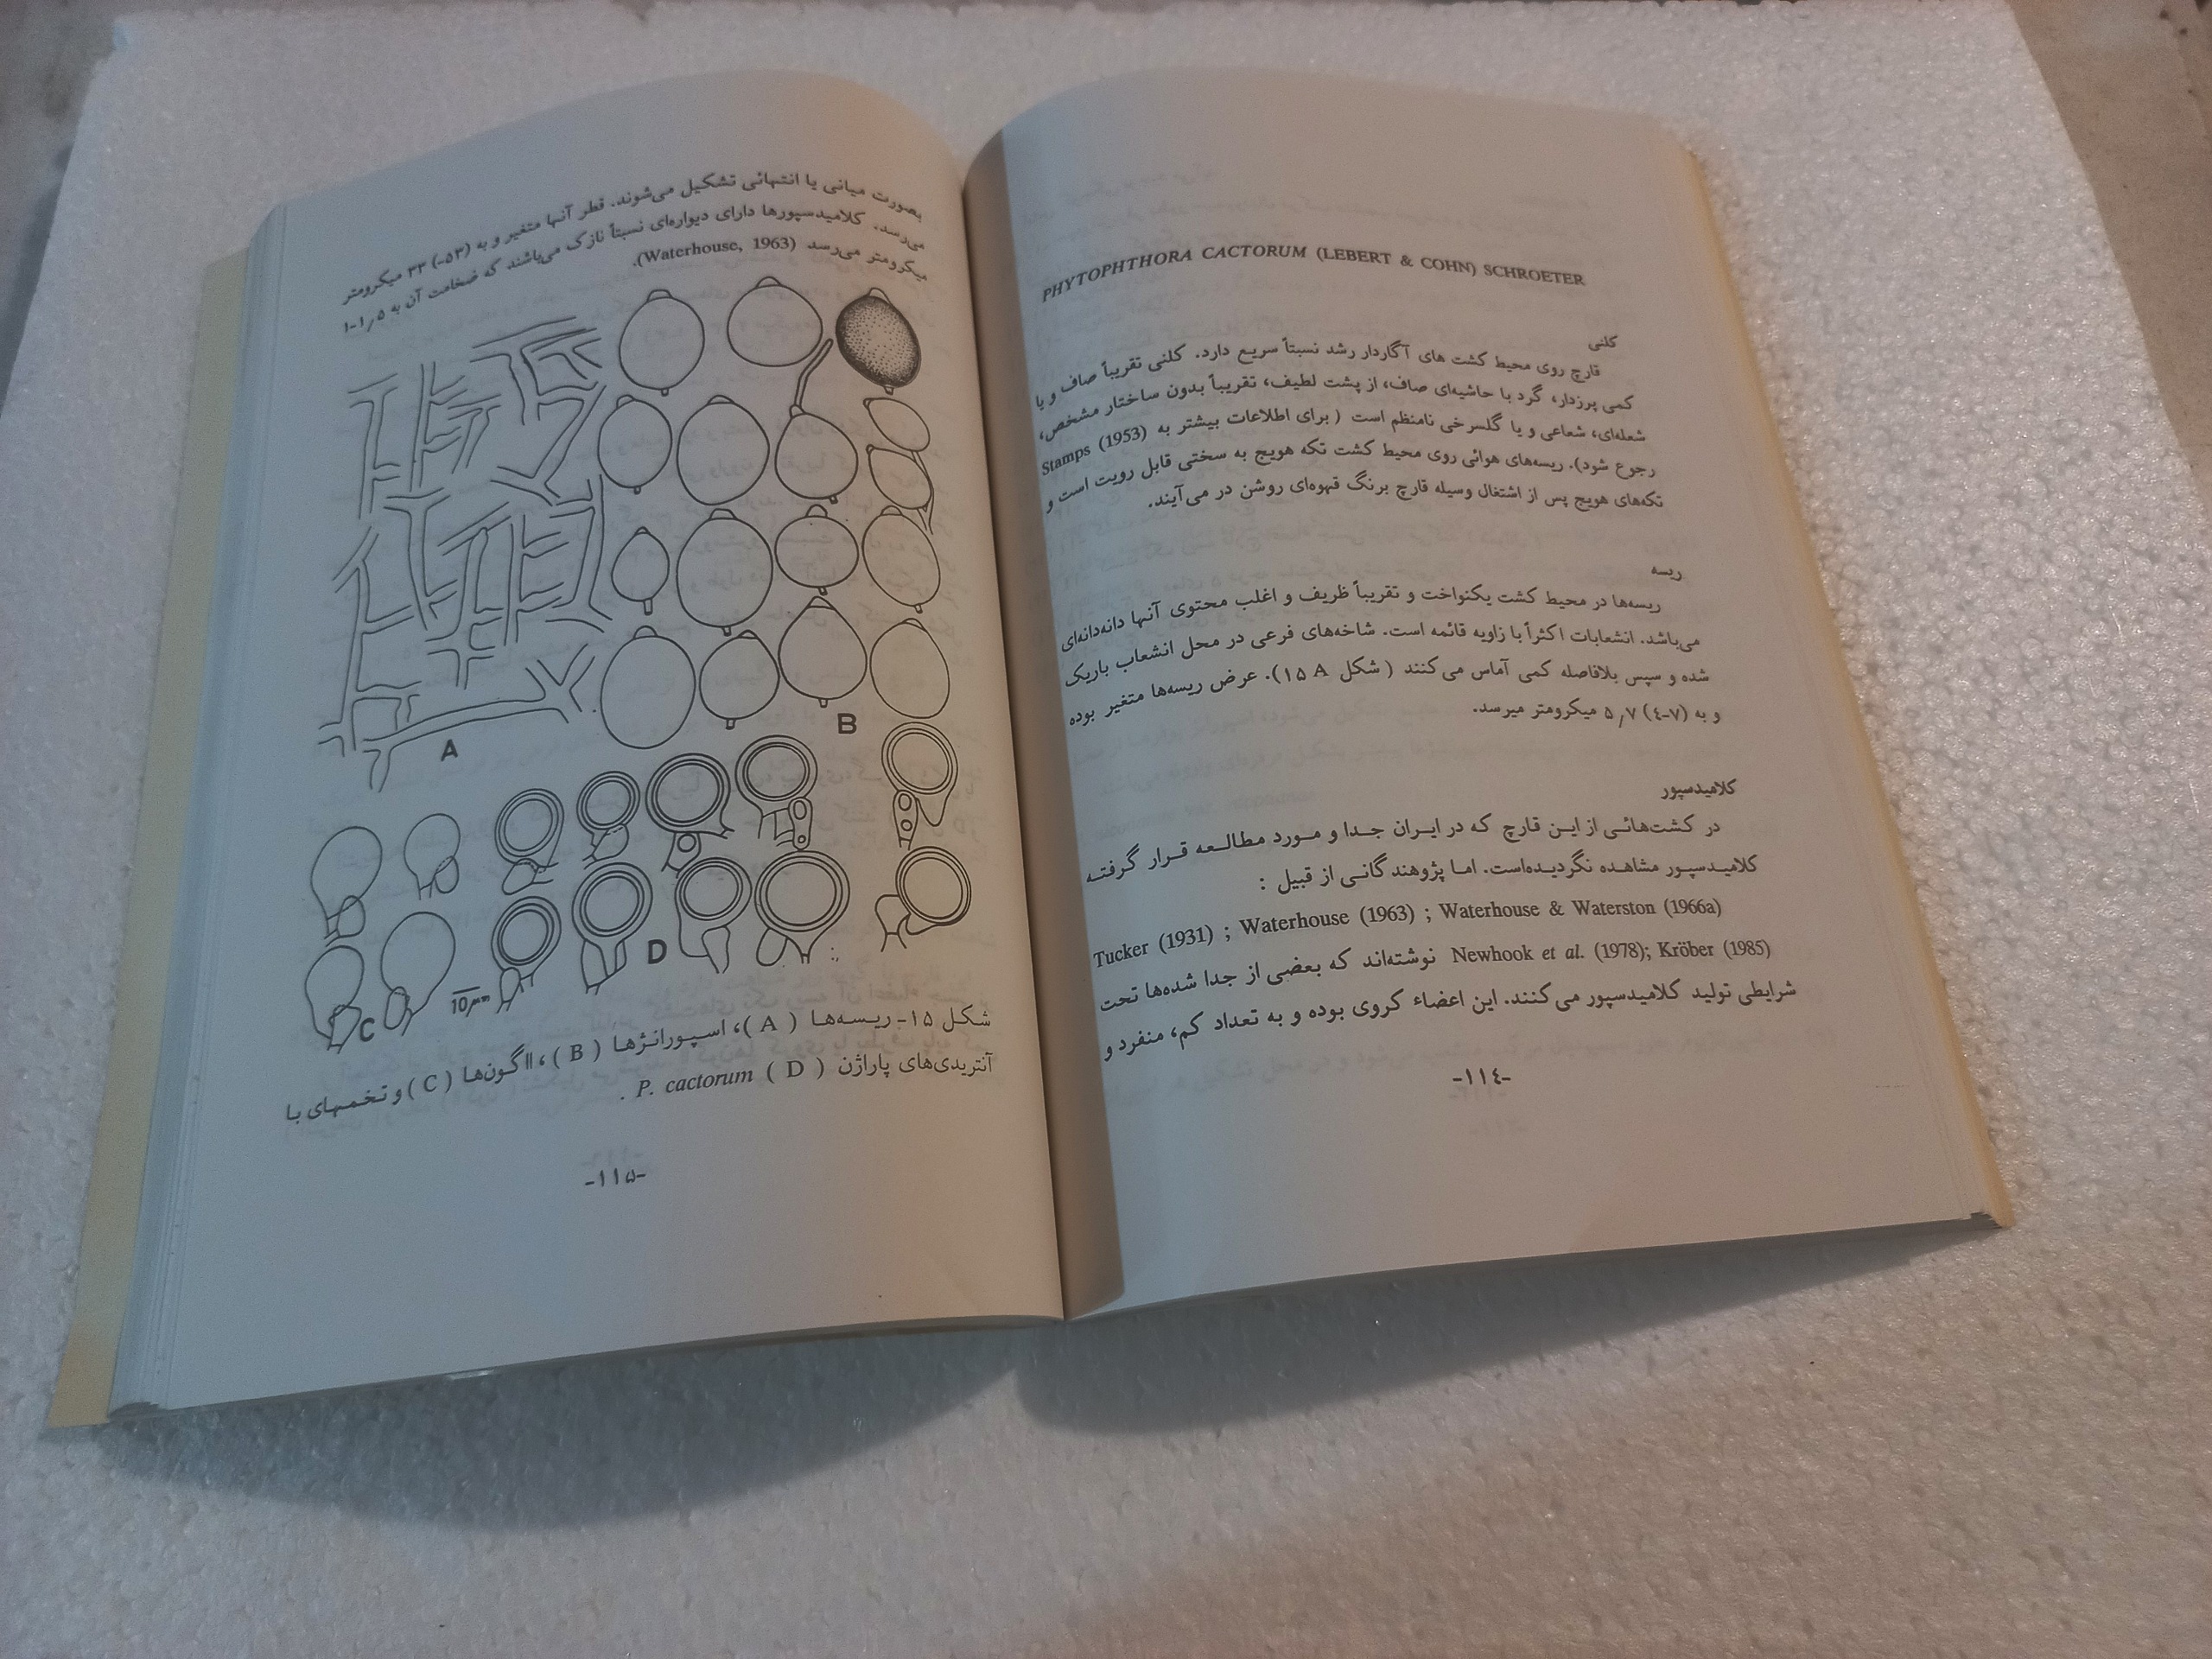 PHYTOPHTHORA CACTORUM (LEBERT & COHN) SCHROETER
کلنی
قارچ روی محیط کشت های آگاردار رشد نسبتاً سریع دارد. کلنی تقریباً صاف و یا
کمی پرزدار، گرد با حاشیه‌ای صاف، از پشت لطیف، تقریباً بدون ساختار مشخص،
شعله‌ای، شعاعی و یا گلسرخی نامنظم است ( برای اطلاعات بیشتر به Stamps (1953)
رجوع شود). ریسه‌های هوائی روی محیط کشت تکه هویج به سختی قابل رویت است و
تکه‌های هویج پس از اشتغال وسیله قارچ برنگ قهوه‌ای روشن در می‌آیند.
ریسه
ریسه‌ها در محیط کشت یکنواخت و تقریباً ظریف و اغلب محتوی آنها دانه‌دانه‌ای
می‌باشد. انشعابات اکثراً با زاویه قائمه است. شاخه‌های فرعی در محل انشعاب باریک
شده و سپس بلافاصله کمی آماس می‌کنند ( شکل ۱۵ A). عرض ریسه‌ها متغیر بوده
و به (۷-٤) ۵٫۷ میکرومتر میرسد.
کلامیدسپور
در کشت‌هائی از این قارچ که در ایران جدا و مورد مطالعه قرار گرفته
کلامیدسپور مشاهده نگردیده‌است. اما پژوهند گانی از قبیل :
Tucker (1931) ; Waterhouse (1963) ; Waterhouse & Waterston (1966a)
Newhook et al. (1978); Kröber (1985) نوشته‌اند که بعضی از جدا شده‌ها تحت
شرایطی تولید کلامیدسپور می‌کنند. این اعضاء کروی بوده و به تعداد کم، منفرد و
-۱۱٤-
بصورت میانی یا انتهائی تشکیل می‌شوند. قطر آنها متغیر و به (۵۳-) ۳۳ میکرومتر
می‌رسد. کلامیدسپورها دارای دیواره‌ای نسبتاً نازک می‌باشند که ضخامت آن به ۱٫۵-۱
میکرومتر می‌رسد (Waterhouse, 1963).
A
B
C
D
10 μm
شکل ۱۵- ریسه‌ها ( A )، اسپورانژها ( B )، ااگون‌ها ( C ) و تخمهای با
آنتریدی‌های پاراژن ( D ) P. cactorum .
-۱۱۵-